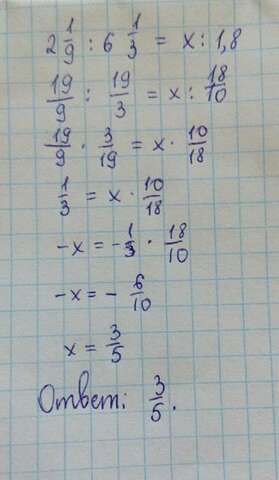 2 1/9 : 6 1/3 = x : 1,8
19/9 : 19/3 = x : 18/10
19/9 · 3/19 = x · 10/18
1/3 = x · 10/18
-x = -1/3 · 18/10
-x = - 6/10
x = 3/5
Ответ: 3/5.